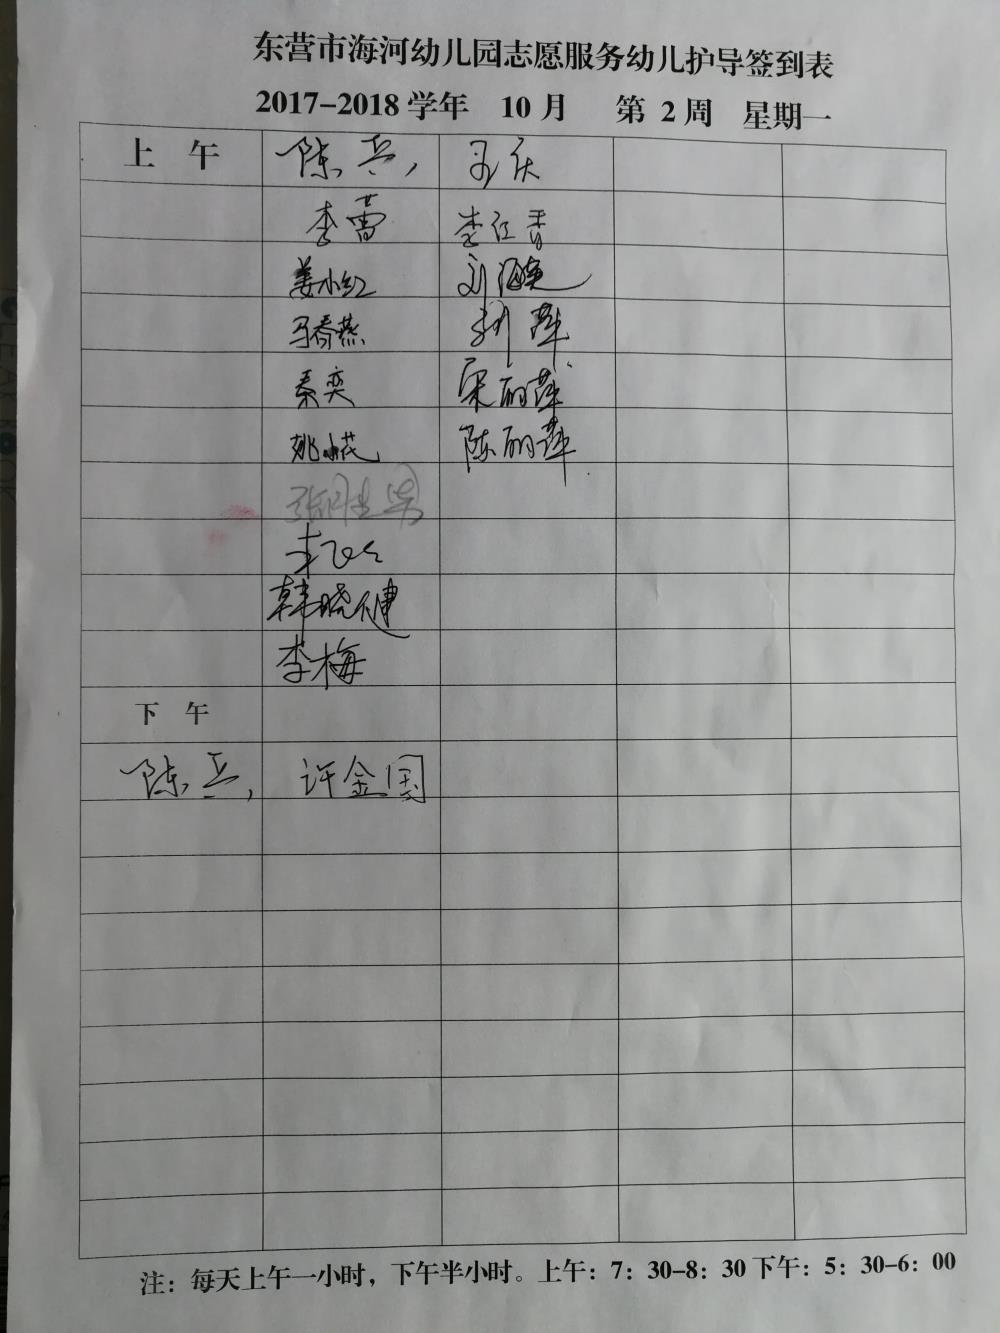 东营市海河幼儿园志愿服务幼儿护导签到表
2017-2018 学年 10 月 第 2 周 星期一
上 午 陈兵
李蕾 李红香
姜小红 刘
马春燕 刘萍
秦奕 梁丽萍
姚 陈丽萍
韩晓健
李梅
下 午
陈兵 许金国
注：每天上午一小时，下午半小时。上午：7：30-8：30 下午：5：30-6：00